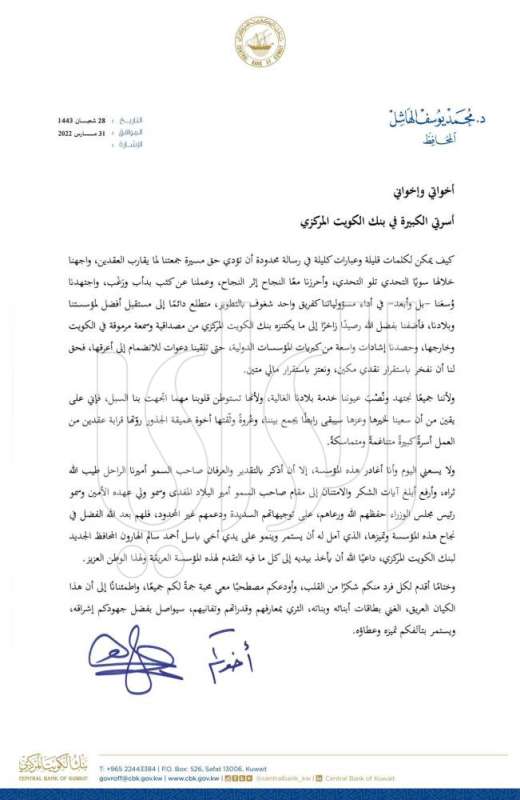 بنك الكويت المركزي
CENTRAL BANK OF KUWAIT
د. محمد يوسف الهاشل
المحافظ
التاريخ : 28 شعبان 1443
الموافق : 31 مارس 2022
الإشارة :
أخواتي وإخواني
أسرتي الكبيرة في بنك الكويت المركزي
كيف يمكن لكلمات قليلة وعبارات كليلة في رسالة محدودة أن تؤدي حق مسيرة جمعتنا لما يقارب العقدين، واجهنا
خلالها سويًا التحدي تلو التحدي، وأحرزنا معًا النجاح إثر النجاح، وعملنا عن كثب بدأب ورَغَب، واجتهدنا
وُسعَنا –بل وأبعد– في أداء مسؤولياتنا كفريق واحد شغوف بالتطوير، متطلع دائمًا إلى مستقبل أفضل لمؤسستنا
وبلادنا، فأضفنا بفضل الله رصيدًا زاخرًا إلى ما يكتنزه بنك الكويت المركزي من مصداقية وسمعة مرموقة في الكويت
وخارجها، وحصدنا إشادات واسعة من كبريات المؤسسات الدولية، حتى تلقينا دعوات للانضمام إلى أعرقها، فحق
لنا أن نفخر باستقرار نقدي مكين، ونعتز باستقرار مالي متين.
ولأننا جميعًا نجتهد ونُصْبَ عيوننا خدمة بلادنا الغالية، ولأنها تستوطن قلوبنا مهما اتجهت بنا السبل، فإني على
يقين من أن سعينا لخيرها وعزها سيبقى رابطًا يجمع بيننا، وعُروةً وثّقتها أخوة عميقة الجذور روّتها قرابة عقدين من
العمل أسرةً كبيرةً متناغمةً ومتماسكةً.
ولا يسعني اليوم وأنا أغادر هذه المؤسسة، إلا أن أذكر بالتقدير والعرفان صاحب السمو أميرنا الراحل طيب الله
ثراه، وأرفع أبلغ آيات الشكر والامتنان إلى مقام صاحب السمو أمير البلاد المفدى وسمو ولي عهده الأمين وسمو
رئيس مجلس الوزراء حفظهم الله ورعاهم، على توجيهاتهم السديدة ودعمهم غير المحدود، فلهم بعد الله الفضل في
نجاح هذه المؤسسة وتميزها، الذي آمل له أن يستمر وينمو على يدي أخي باسل أحمد سالم الهارون المحافظ الجديد
لبنك الكويت المركزي، داعيًا الله أن يأخذ بيديه إلى كل ما فيه التقدم لهذه المؤسسة العريقة ولهذا الوطن العزيز.
وختامًا أقدم لكل فرد منكم شكرًا من القلب، وأودعكم مصطحبًا معي محبة جمّة لكم جميعًا، واطمئنانًا إلى أن هذا
الكيان العريق، الغني بطاقات أبنائه وبناته، الثري بمعارفهم وقدراتهم وتفانيهم، سيواصل بفضل جهودكم إشراقه،
ويستمر بتآلفكم تميزه وعطاؤه.
أخوكم
الراي
بنك الكويت المركزي
CENTRAL BANK OF KUWAIT
T: +965 22443384 | P.O. Box: 526, Safat 13006, Kuwait
govroff@cbk.gov.kw | www.cbk.gov.kw | @centralbank_kw | Central Bank of Kuwait